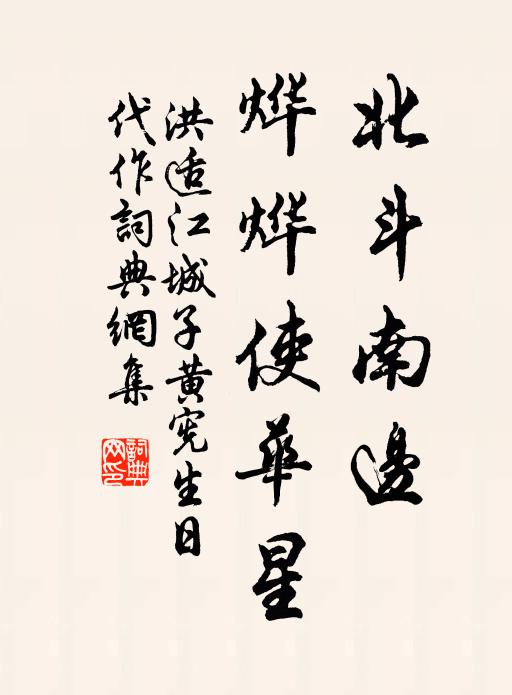 北斗南邊
烨烨使華星
洪适江城子黄宪生日
代作詞典網集
詞典網印